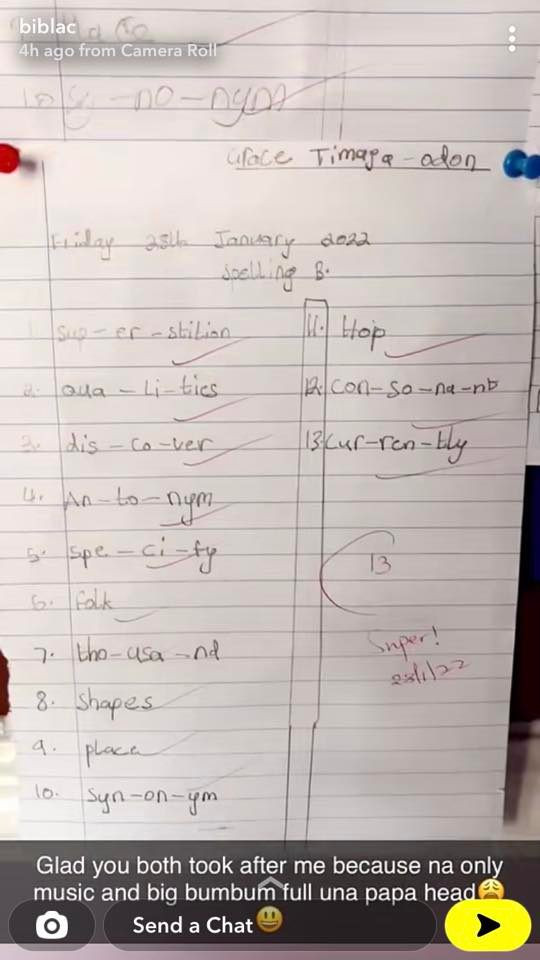 biblac
4h ago from Camera Roll
10 Sy-no-nym
Grace Timaya-odon
Friday 28th January 2022
Spelling B.
1. Sup-er-stition
2. qua-Li-ties
3. dis-co-ver
4. An-to-nym
5. Spe-ci-fy
6. folk
7. tho-usa-nd
8. Shapes
9. place
10. Syn-on-ym
11. Hop
12. Con-so-na-nt
13 Cur-ren-tly
13
Super!
28/1/22
Glad you both took after me because na only
music and big bumbum full una papa head😩
Send a Chat😃